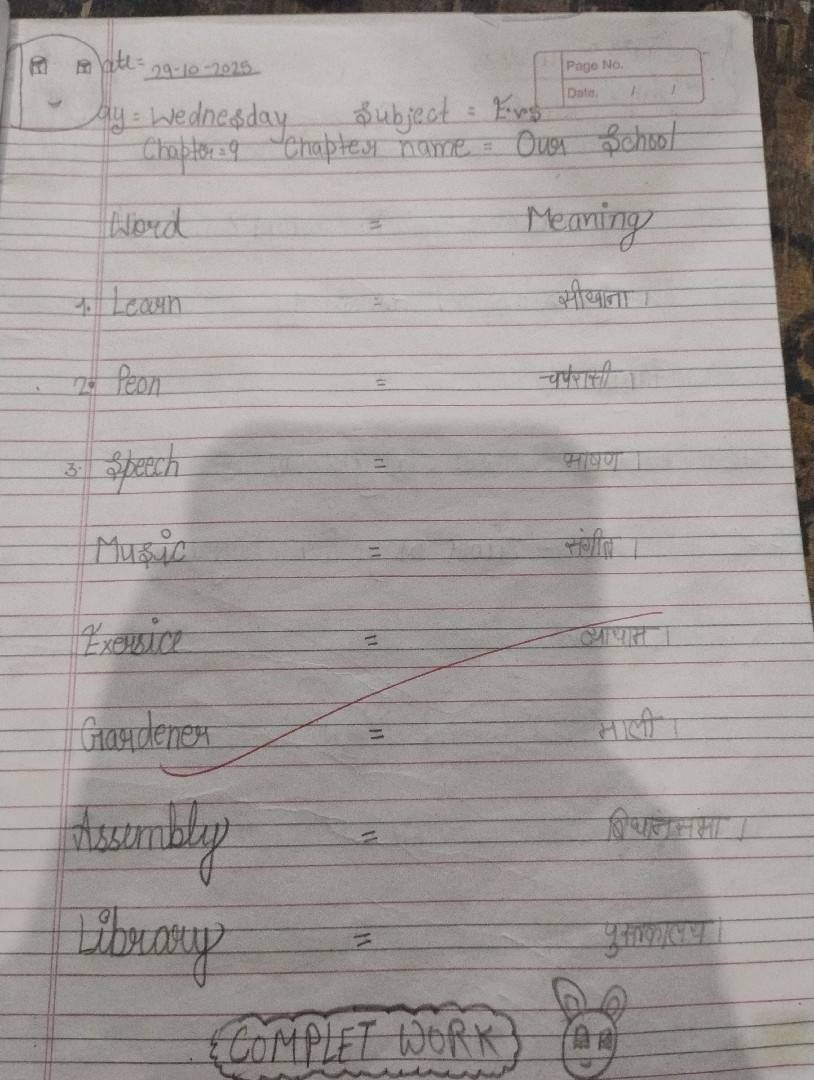 Date = 29-10-2025
Page No.
Date. / /
Day = Wednesday Subject = Evs
Chapter = 9 Chapter name = Our School
Word = Meaning
1. Learn = सीखना ।
2. Peon = चपरासी ।
3. Speech = भाषण ।
Music = संगीत ।
Exersice = व्यायाम ।
Gardener = माली ।
Assembly =
Library = पुस्तकालय ।
COMPLET WORK